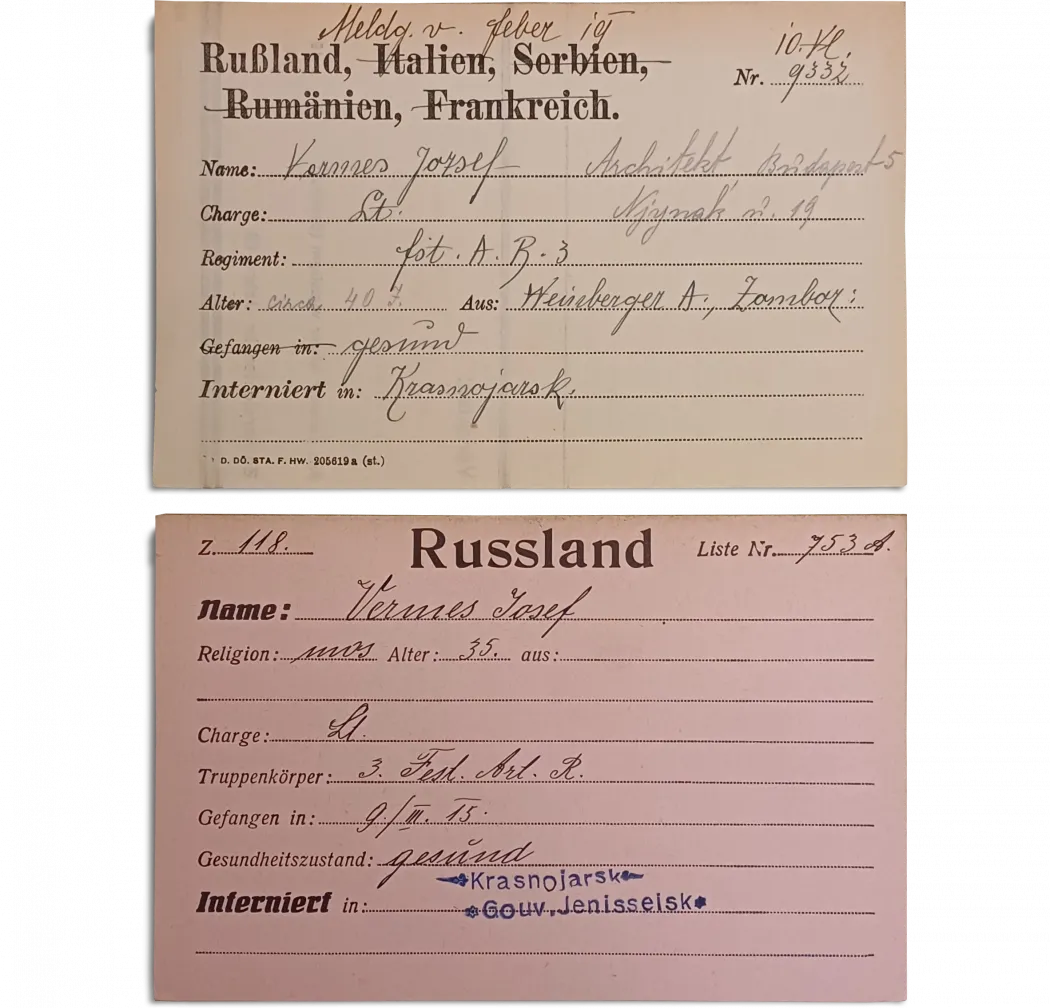 Meldg. v. feber 19
Rußland, Italien, Serbien,
Rumänien, Frankreich.
10.VI.
Nr. 9332
Name: Vermes Jozsef Architekt, Budapest 5
Charge: Lt. ú. 19
Regiment: fst. A. R. 3
Alter: circa 40 J. Aus: Weinberger A., Zombor:
Gefangen in: gesund
Interniert in: Krasnojarsk.
D. DÖ. STA. F. HW. 205619a (st.)
Z. 118. Russland Liste Nr. 753 A.
Name: Vermes Josef
Religion: mos Alter: 35. aus:
Charge: Lt.
Truppenkörper: 3. Fest. Art. R.
Gefangen in: 9./III. 15.
Gesundheitszustand: gesund
Krasnojarsk
Interniert in: Gouv. Jenisseisk